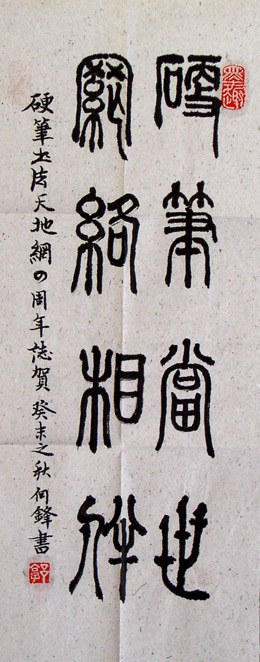 硬筆當世
網絡相伴
硬筆书法天地網四周年誌賀 癸未之秋何鋒書